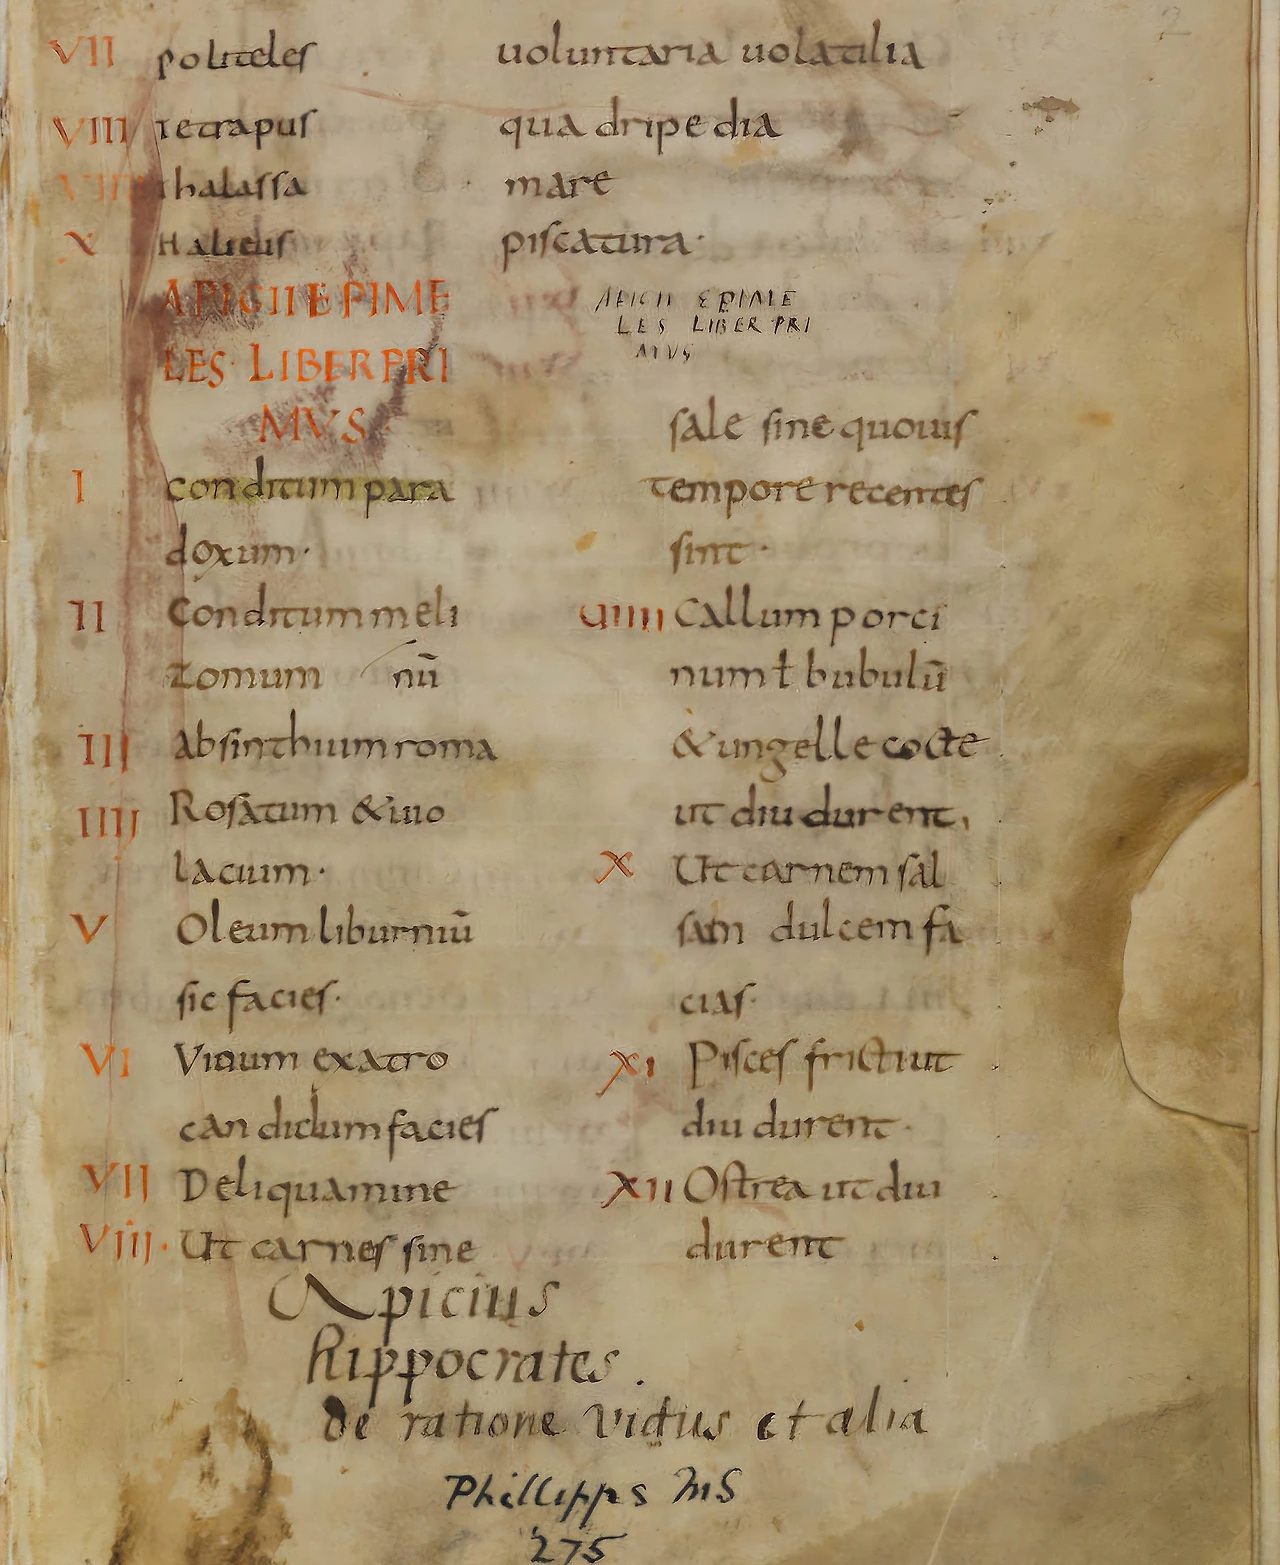 VII politeles uoluntaria uolatilia
VIII tetrapus quadripedia
VIIII thalassa mare
X Halieus piscatura·
APICII EPIME
LES· LIBER PRI
MVS
I conditum para
doxum·
II Conditum meli
zomum nū
III absinthium roma
IIII Rosatum & uio
lacium·
V Oleum liburniū
sic facies·
VI Vinum ex atro
candidum facies
VII De liquamine
VIII· Ut carnes sine
APICII EPIME
LES LIBER PRI
MVS
sale sine quouis
tempore recentes
sint·
uiiii Callum porci
num ł bubulū
& ungelle cocte
ut diu durent,
X Ut carnem sal
sam dulcem fa
cias·
XI Pisces fricti ut
diu durent·
XII Ostrea ut diu
durent
Apicius
hippocrates.
de ratione victus et alia
Phillipps MS
275
2